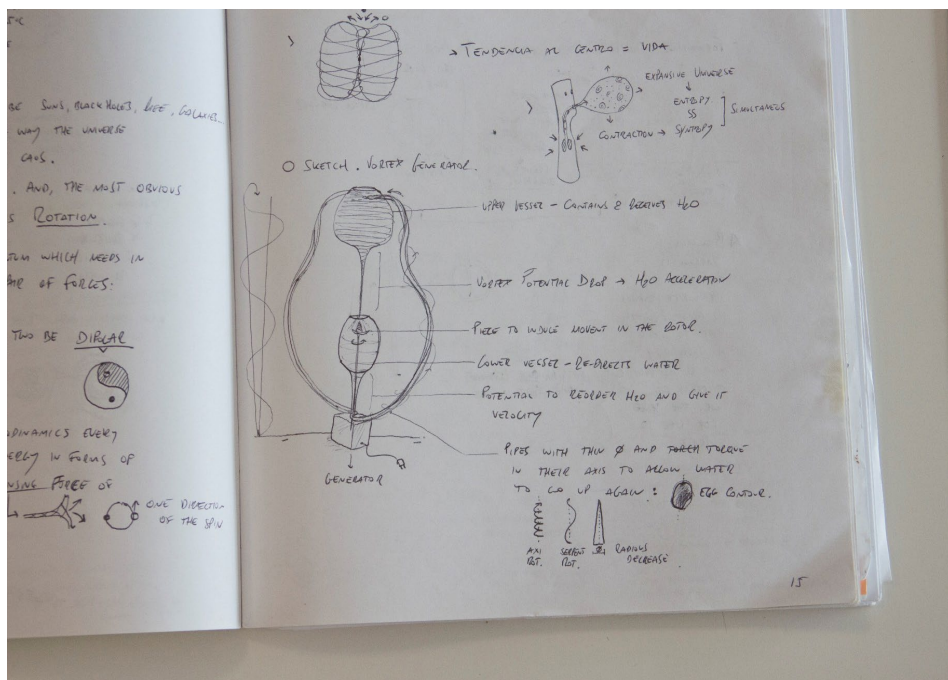 BE SUNS, BLACK HOLES, LIFE, GALAXIES...
WAY THE UNIVERSE
CAOS.
. AND, THE MOST OBVIOUS
S ROTATION.
TUM WHICH NEEDS IN
AIR OF FORCES:
TWO BE DIPOLAR
ODINAMICS EVERY
ERGY IN FORMS OF
NSING FORCE OF
ONE DIRECTION
OF THE SPIN
> TENDENCIA AL CENTRO = VIDA
EXPANSIVE UNIVERSE
ENTROPY
SS
SIMULTANEUS
CONTRACTION → SYNTROPY
O SKETCH. VORTEX GENERATOR.
UPPER VESSER - CONTAINS & RECEIVES H2O
VORTEX POTENTIAL DROP → H2O ACCELERATION
PIECE TO INDUCE MOVENT IN THE ROTOR.
LOWER VESSER - RE-DIRECTS WATER
POTENTIAL TO REORDER H2O AND GIVE IT
VELOCITY
PIPES WITH THIN Ø AND TORQUE
IN THEIR AXIS TO ALLOW WATER
TO GO UP AGAIN:
EGG CONTOUR.
GENERATOR
AXI
ROT.
SERPENT
ROT.
RADIOUS
DECREASE
15